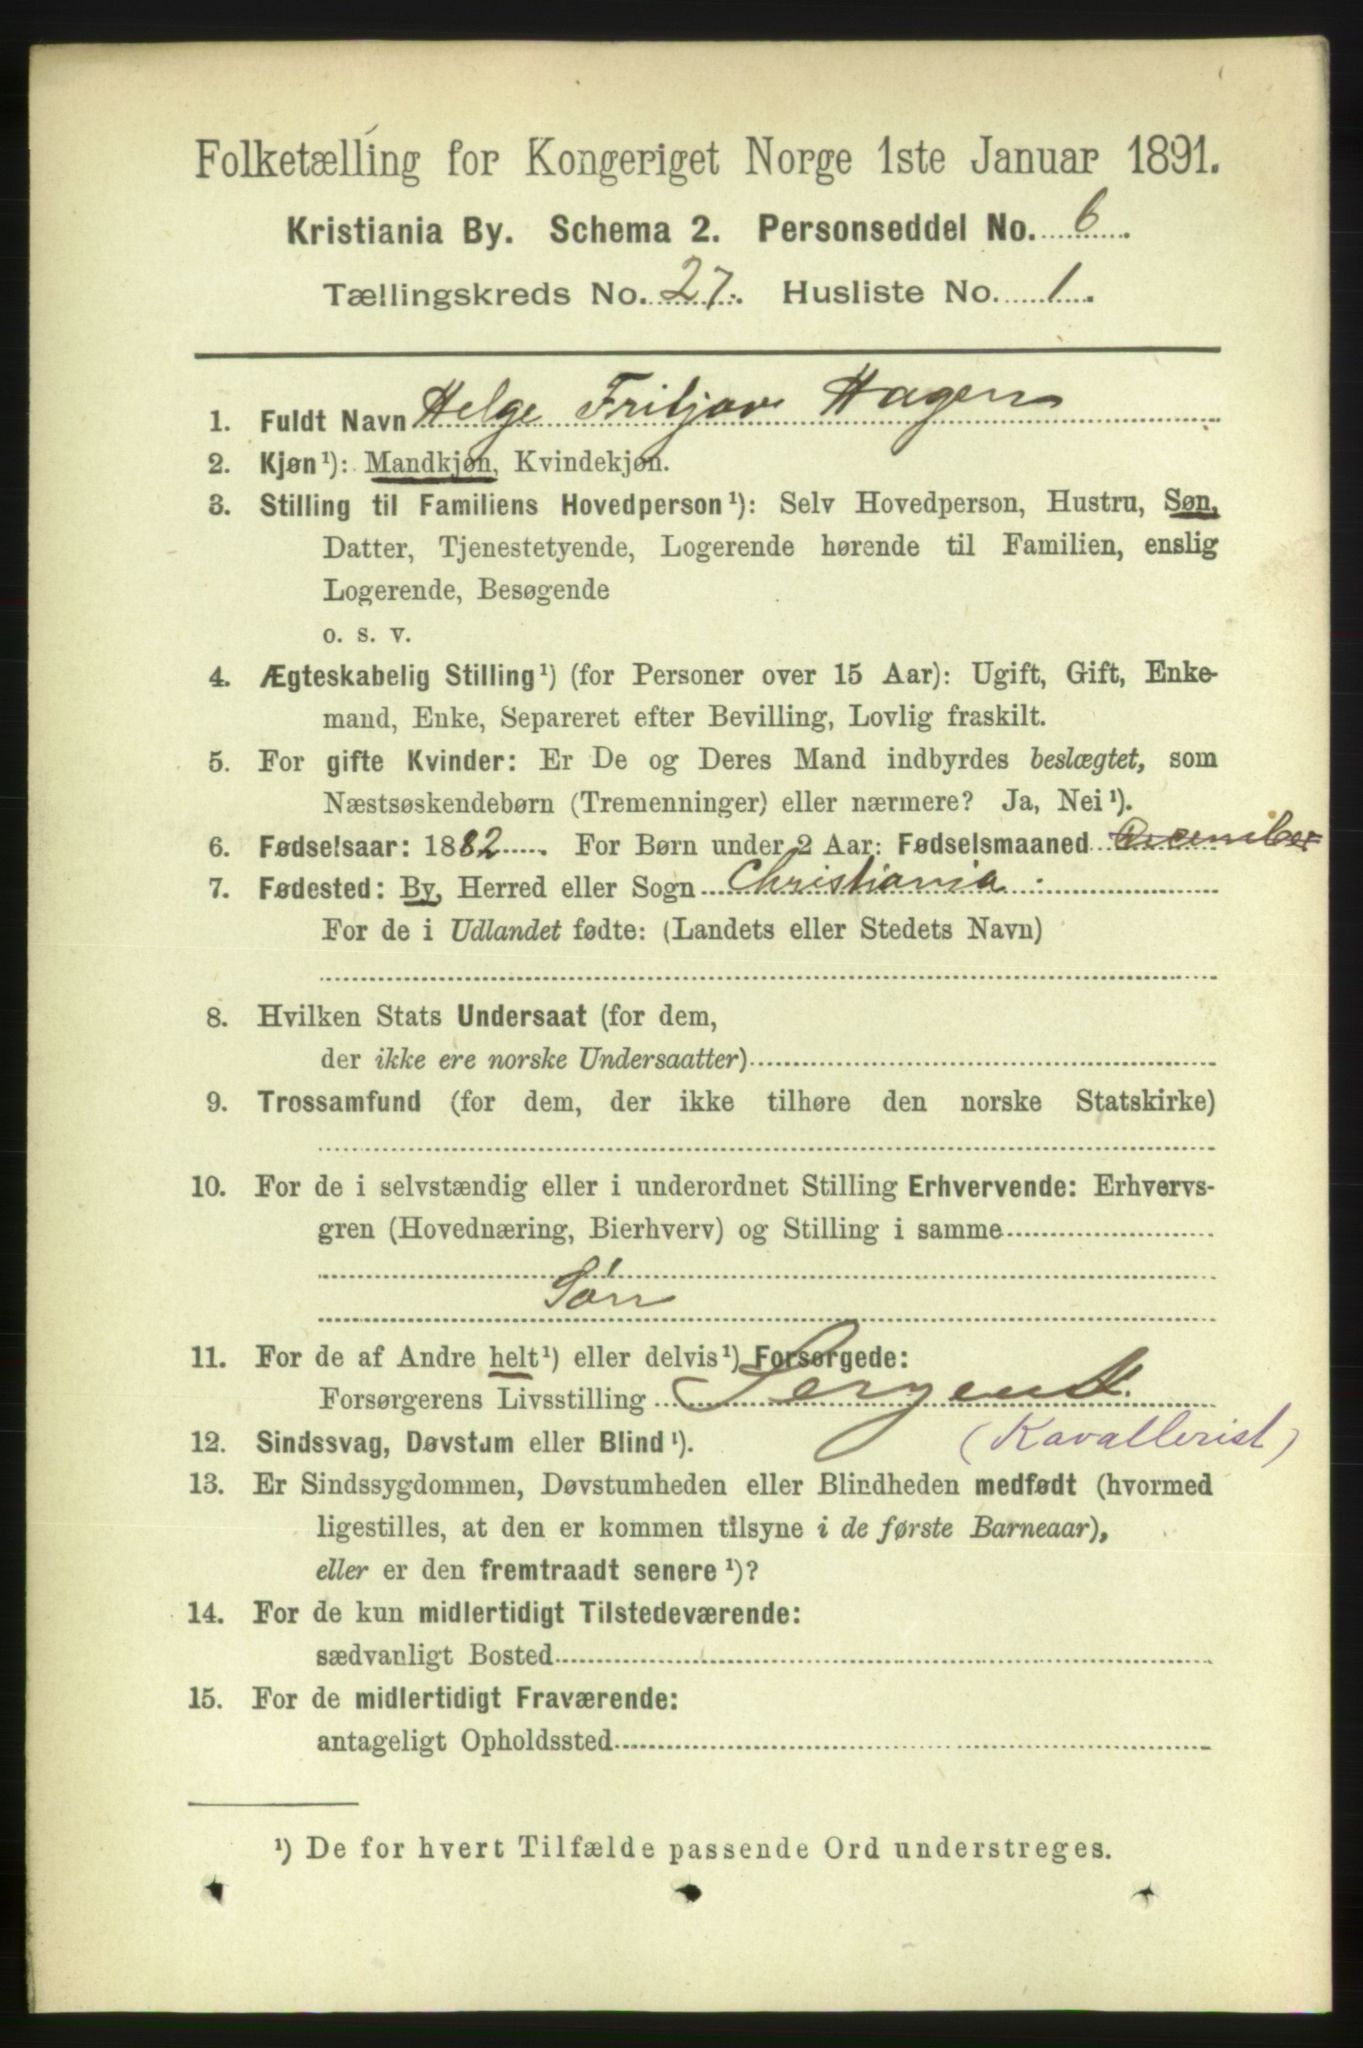 Folketælling for Kongeriget Norge 1ste Januar 1891.
Kristiania By. Schema 2. Personseddel No. 6.
Tællingskreds No. 27. Husliste No. 1.
1. Fuldt Navn Helge Fritjov Hagen
2. Kjøn¹): Mandkjøn, Kvindekjøn.
3. Stilling til Familiens Hovedperson¹): Selv Hovedperson, Hustru, Søn,
Datter, Tjenestetyende, Logerende hørende til Familien, enslig
Logerende, Besøgende
o. s. v.
4. Ægteskabelig Stilling¹) (for Personer over 15 Aar): Ugift, Gift, Enke-
mand, Enke, Separeret efter Bevilling, Lovlig fraskilt.
5. For gifte Kvinder: Er De og Deres Mand indbyrdes beslægtet, som
Næstsøskendebørn (Tremenninger) eller nærmere? Ja, Nei¹).
6. Fødselsaar: 1882. For Børn under 2 Aar: Fødselsmaaned December
7. Fødested: By, Herred eller Sogn Christiania
For de i Udlandet fødte: (Landets eller Stedets Navn)
8. Hvilken Stats Undersaat (for dem,
der ikke ere norske Undersaatter)
9. Trossamfund (for dem, der ikke tilhøre den norske Statskirke)
10. For de i selvstændig eller i underordnet Stilling Erhvervende: Erhvervs-
gren (Hovednæring, Bierhverv) og Stilling i samme
Sön
11. For de af Andre helt¹) eller delvis¹) Forsørgede:
Forsørgerens Livsstilling Sergent.
(Kavallerist)
12. Sindssvag, Døvstum eller Blind¹).
13. Er Sindssygdommen, Døvstumheden eller Blindheden medfødt (hvormed
ligestilles, at den er kommen tilsyne i de første Barneaar),
eller er den fremtraadt senere¹)?
14. For de kun midlertidigt Tilstedeværende:
sædvanligt Bosted
15. For de midlertidigt Fraværende:
antageligt Opholdssted
¹) De for hvert Tilfælde passende Ord understreges.